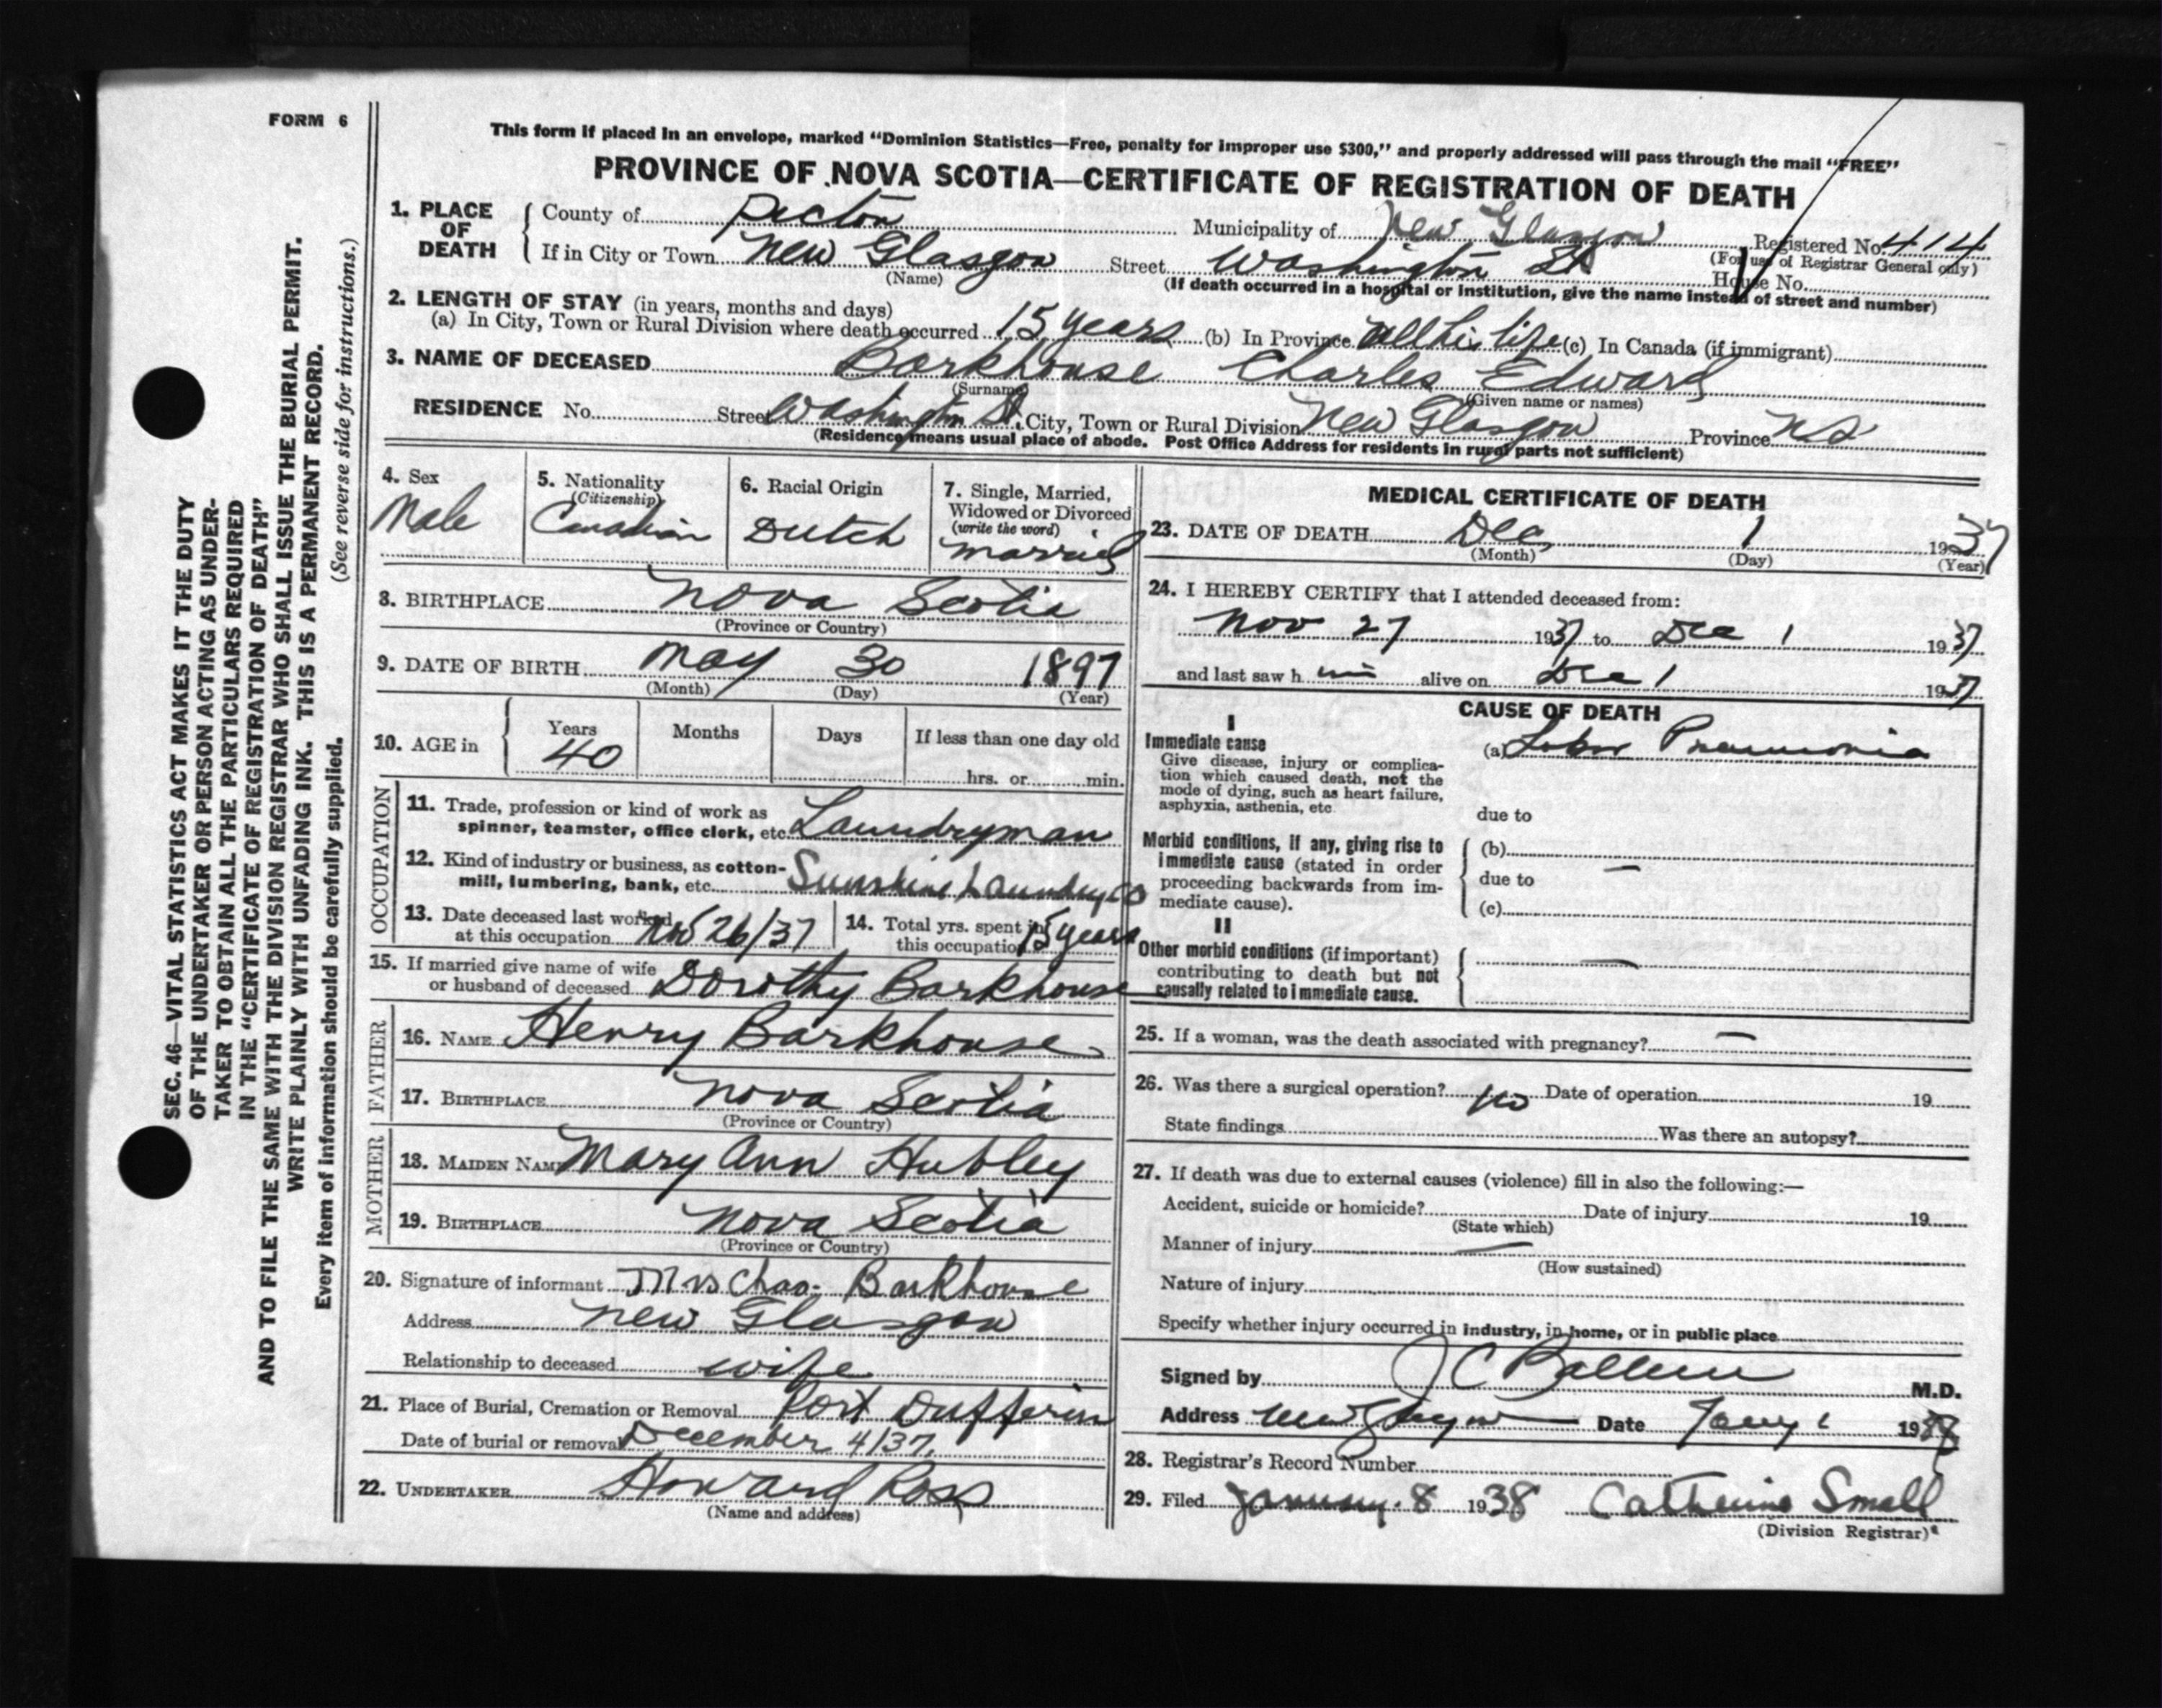 FORM 6
This form if placed in an envelope, marked "Dominion Statistics—Free, penalty for improper use $300," and properly addressed will pass through the mail "FREE"
PROVINCE OF NOVA SCOTIA—CERTIFICATE OF REGISTRATION OF DEATH
1. PLACE OF DEATH
County of Pictou Municipality of New Glasgow Registered No. 414
(For use of Registrar General only)
If in City or Town New Glasgow Street Washington St House No.
(Name)
(If death occurred in a hospital or institution, give the name instead of street and number)
2. LENGTH OF STAY (in years, months and days)
(a) In City, Town or Rural Division where death occurred 15 years (b) In Province All his life (c) In Canada (if immigrant)
3. NAME OF DECEASED Barkhouse Charles Edward
(Surname) (Given name or names)
RESIDENCE No. Street Washington St. City, Town or Rural Division New Glasgow Province NS
(Residence means usual place of abode. Post Office Address for residents in rural parts not sufficient)
4. Sex
Male
5. Nationality
(Citizenship)
Canadian
6. Racial Origin
Dutch
7. Single, Married,
Widowed or Divorced
(write the word)
Married
8. BIRTHPLACE Nova Scotia
(Province or Country)
9. DATE OF BIRTH May 30 1897
(Month) (Day) (Year)
10. AGE in Years Months Days If less than one day old
40 hrs. or min.
OCCUPATION
11. Trade, profession or kind of work as
spinner, teamster, office clerk, etc. Laundryman
12. Kind of industry or business, as cotton-
mill, lumbering, bank, etc. Sunshine Laundry Co
13. Date deceased last worked
at this occupation Nov 26/37
14. Total yrs. spent in
this occupation 15 years
15. If married give name of wife
or husband of deceased Dorothy Barkhouse
FATHER
16. NAME Henry Barkhouse
17. BIRTHPLACE Nova Scotia
(Province or Country)
MOTHER
18. MAIDEN NAME Mary Ann Hubley
19. BIRTHPLACE Nova Scotia
(Province or Country)
20. Signature of informant Mrs Chas. Barkhouse
Address New Glasgow
Relationship to deceased wife
21. Place of Burial, Cremation or Removal Port Dufferin
Date of burial or removal December 4/37.
22. UNDERTAKER Howard Ross
(Name and address)
MEDICAL CERTIFICATE OF DEATH
23. DATE OF DEATH Dec 1 1937
(Month) (Day) (Year)
24. I HEREBY CERTIFY that I attended deceased from:
Nov 27 1937 to Dec 1 1937
and last saw h im alive on Dec 1 1937
CAUSE OF DEATH
I
Immediate cause
Give disease, injury or complica-
tion which caused death, not the
mode of dying, such as heart failure,
asphyxia, asthenia, etc.
(a) Lobar Pneumonia
due to
Morbid conditions, if any, giving rise to
immediate cause (stated in order
proceeding backwards from im-
mediate cause).
(b)
due to —
(c)
II
Other morbid conditions (if important)
contributing to death but not
causally related to immediate cause.
—
25. If a woman, was the death associated with pregnancy? —
26. Was there a surgical operation? No Date of operation 19
State findings Was there an autopsy?
27. If death was due to external causes (violence) fill in also the following:—
Accident, suicide or homicide? Date of injury 19
(State which)
Manner of injury —
(How sustained)
Nature of injury
Specify whether injury occurred in industry, in home, or in public place
Signed by J C Ballem M.D.
Address New Glasgow Date Jany 1938
28. Registrar's Record Number
29. Filed January 8 1938 Catherine Small
(Division Registrar)
SEC. 46—VITAL STATISTICS ACT MAKES IT THE DUTY
OF THE UNDERTAKER OR PERSON ACTING AS UNDER-
TAKER TO OBTAIN ALL THE PARTICULARS REQUIRED
IN THE "CERTIFICATE OF REGISTRATION OF DEATH"
AND TO FILE THE SAME WITH THE DIVISION REGISTRAR WHO SHALL ISSUE THE BURIAL PERMIT.
WRITE PLAINLY WITH UNFADING INK. THIS IS A PERMANENT RECORD.
Every item of information should be carefully supplied. (See reverse side for instructions.)